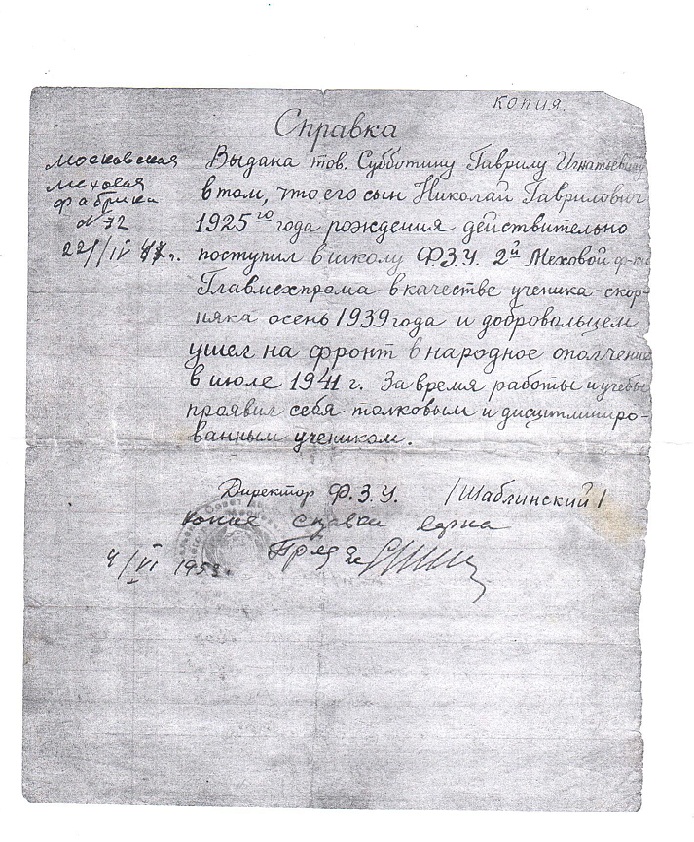 копия.
Справка
Московская
меховая
фабрика
№ 72
Выдана тов. Субботину Гаврилу Игнатьевичу
в том, что его сын Николай Гаврилович
1925го года рождения действительно
поступил в школу Ф.З.У. 2й Меховой ф-ки
Главмехпрома в качестве ученика скор-
няка осень 1939 года и добровольцем
ушел на фронт в народное ополчение
в июле 1941 г. За время работы и учебы
проявил себя толковым и дисциплиниро-
ванным учеником.
Директор Ф.З.У. /Шаблинский/
Копия справки верна
4/VI 1953.